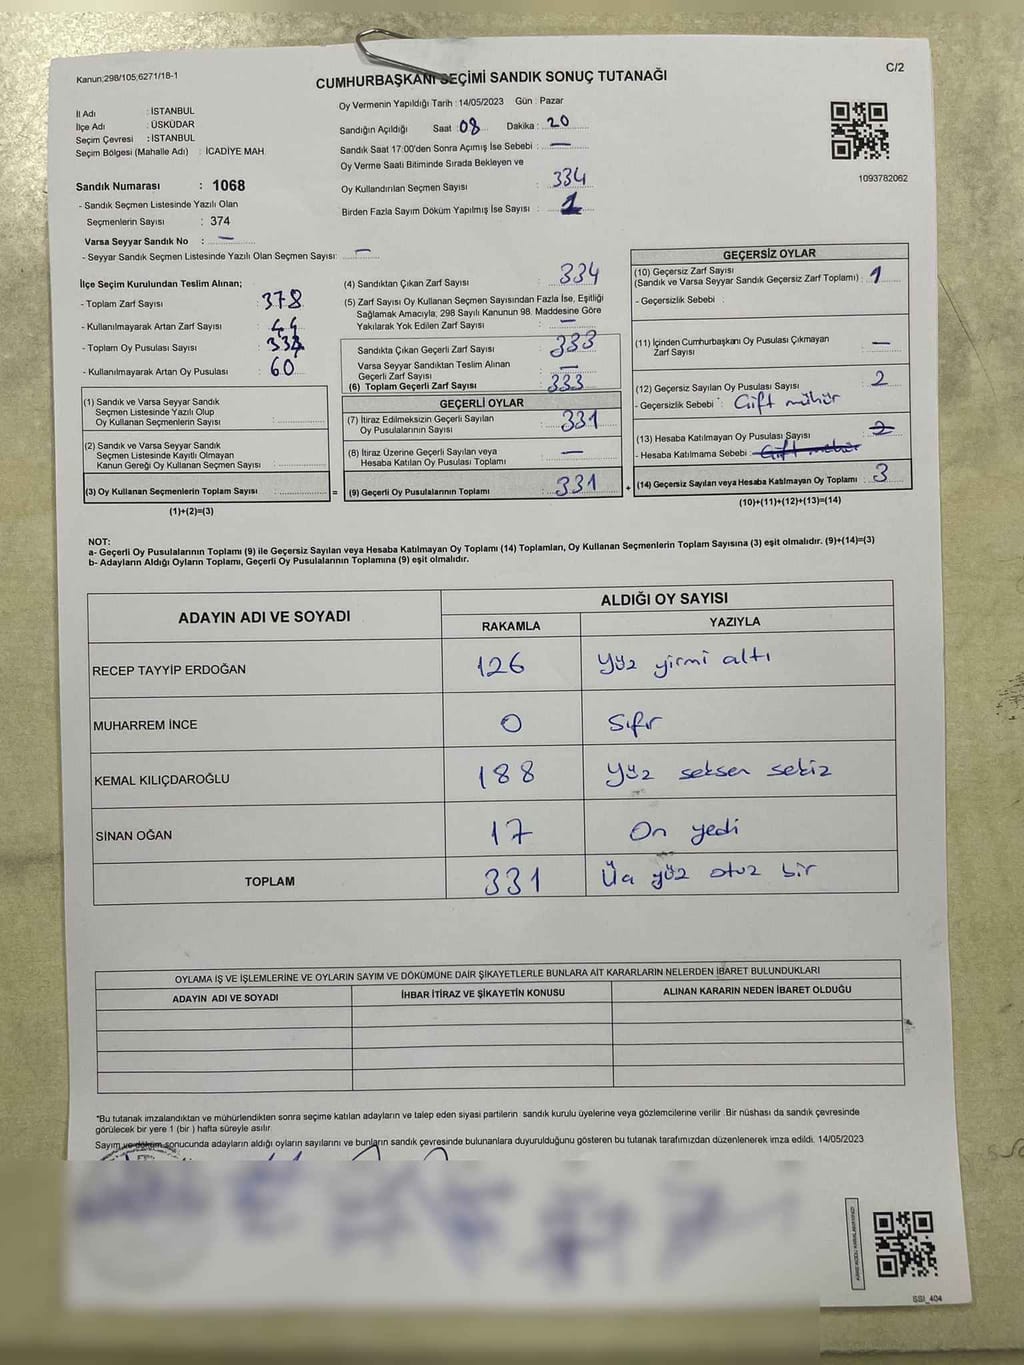 Kanun;298/105;6271/18-1
C/2
CUMHURBAŞKANI SEÇİMİ SANDIK SONUÇ TUTANAĞI
İl Adı : İSTANBUL
İlçe Adı : ÜSKÜDAR
Seçim Çevresi : İSTANBUL
Seçim Bölgesi (Mahalle Adı) : İCADİYE MAH
Oy Vermenin Yapıldığı Tarih : 14/05/2023 Gün : Pazar
Sandığın Açıldığı Saat : 08 Dakika : 20
Sandık Saat 17:00'den Sonra Açımış İse Sebebi : —
Oy Verme Saati Bitiminde Sırada Bekleyen ve
Oy Kullandırılan Seçmen Sayısı : 334
Birden Fazla Sayım Döküm Yapılmış İse Sayısı : 1
1093782062
Sandık Numarası : 1068
- Sandık Seçmen Listesinde Yazılı Olan
Seçmenlerin Sayısı : 374
Varsa Seyyar Sandık No : —
- Seyyar Sandık Seçmen Listesinde Yazılı Olan Seçmen Sayısı: —
İlçe Seçim Kurulundan Teslim Alınan;
- Toplam Zarf Sayısı : 378
- Kullanılmayarak Artan Zarf Sayısı : 44
- Toplam Oy Pusulası Sayısı :
- Kullanılmayarak Artan Oy Pusulası : 60
(1) Sandık ve Varsa Seyyar Sandık
Seçmen Listesinde Yazılı Olup
Oy Kullanan Seçmenlerin Sayısı :
(2) Sandık ve Varsa Seyyar Sandık
Seçmen Listesinde Kayıtlı Olmayan
Kanun Gereği Oy Kullanan Seçmen Sayısı :
(3) Oy Kullanan Seçmenlerin Toplam Sayısı :
(1)+(2)=(3)
(4) Sandıktan Çıkan Zarf Sayısı : 334
(5) Zarf Sayısı Oy Kullanan Seçmen Sayısından Fazla İse, Eşitliği
Sağlamak Amacıyla, 298 Sayılı Kanunun 98. Maddesine Göre
Yakılarak Yok Edilen Zarf Sayısı : —
Sandıkta Çıkan Geçerli Zarf Sayısı : 333
Varsa Seyyar Sandıktan Teslim Alınan
Geçerli Zarf Sayısı : —
(6) Toplam Geçerli Zarf Sayısı : 333
GEÇERLİ OYLAR
(7) İtiraz Edilmeksizin Geçerli Sayılan
Oy Pusulalarının Sayısı : 331
(8) İtiraz Üzerine Geçerli Sayılan veya
Hesaba Katılan Oy Pusulası Toplamı : —
= (9) Geçerli Oy Pusulalarının Toplamı : 331 +
GEÇERSİZ OYLAR
(10) Geçersiz Zarf Sayısı
(Sandık ve Varsa Seyyar Sandık Geçersiz Zarf Toplamı) : 1
- Geçersizlik Sebebi :
(11) İçinden Cumhurbaşkanı Oy Pusulası Çıkmayan
Zarf Sayısı : —
(12) Geçersiz Sayılan Oy Pusulası Sayısı : 2
- Geçersizlik Sebebi : Çift mühür
(13) Hesaba Katılmayan Oy Pusulası Sayısı : 2
- Hesaba Katılmama Sebebi : Çift mühür
(14) Geçersiz Sayılan veya Hesaba Katılmayan Oy Toplamı : 3
(10)+(11)+(12)+(13)=(14)
NOT:
a- Geçerli Oy Pusulalarının Toplamı (9) ile Geçersiz Sayılan veya Hesaba Katılmayan Oy Toplamı (14) Toplamları, Oy Kullanan Seçmenlerin Toplam Sayısına (3) eşit olmalıdır. (9)+(14)=(3)
b- Adayların Aldığı Oyların Toplamı, Geçerli Oy Pusulalarının Toplamına (9) eşit olmalıdır.
ADAYIN ADI VE SOYADI
ALDIĞI OY SAYISI
RAKAMLA YAZIYLA
RECEP TAYYİP ERDOĞAN 126 Yüz yirmi altı
MUHARREM İNCE 0 Sıfır
KEMAL KILIÇDAROĞLU 188 Yüz seksen sekiz
SİNAN OĞAN 17 On yedi
TOPLAM 331 Üç yüz otuz bir
OYLAMA İŞ VE İŞLEMLERİNE VE OYLARIN SAYIM VE DÖKÜMÜNE DAİR ŞİKAYETLERLE BUNLARA AİT KARARLARIN NELERDEN İBARET BULUNDUKLARI
ADAYIN ADI VE SOYADI İHBAR İTİRAZ VE ŞİKAYETİN KONUSU ALINAN KARARIN NEDEN İBARET OLDUĞU
*Bu tutanak imzalandıktan ve mühürlendikten sonra seçime katılan adayların ve talep eden siyasi partilerin sandık kurulu üyelerine veya gözlemcilerine verilir .Bir nüshası da sandık çevresinde
görülecek bir yere 1 (bir ) hafta süreyle asılır.
Sayım ve döküm sonucunda adayların aldığı oyların sayılarını ve bunların sandık çevresinde bulunanlara duyurulduğunu gösteren bu tutanak tarafımızdan düzenlenerek imza edildi. 14/05/2023
SSI_404